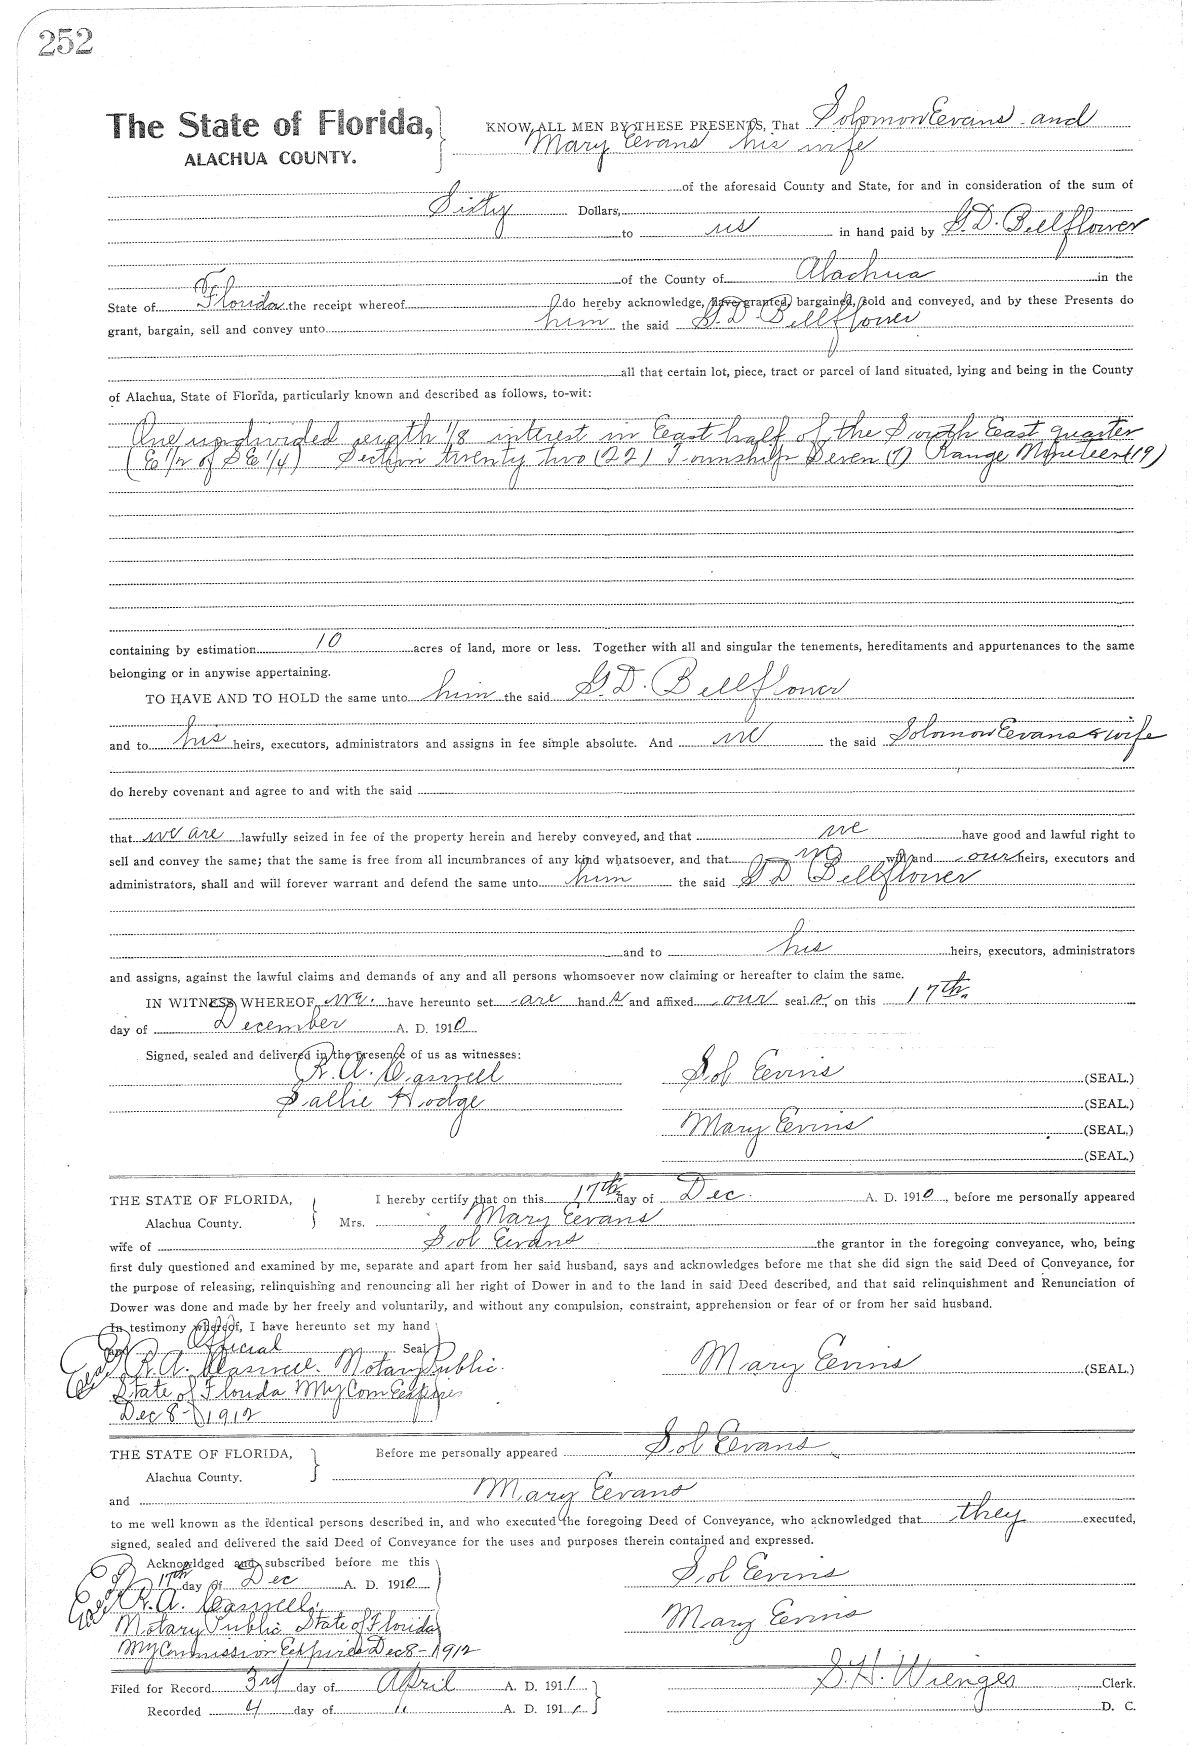 252
The State of Florida, KNOW ALL MEN BY THESE PRESENTS, That Solomon Eevans and
ALACHUA COUNTY. Mary Eevans his wife
of the aforesaid County and State, for and in consideration of the sum of
Sixty Dollars,
to us in hand paid by G.D. Bellflower
of the County of Alachua in the
State of Florida the receipt whereof do hereby acknowledge, have granted, bargained, sold and conveyed, and by these Presents do
grant, bargain, sell and convey unto him the said G.D. Bellflower
all that certain lot, piece, tract or parcel of land situated, lying and being in the County
of Alachua, State of Florida, particularly known and described as follows, to-wit:
One undivided 1/8 interest in East half of the South East quarter
(E 1/2 of SE 1/4) Section twenty two (22) Township Seven (7) Range Nineteen (19)
containing by estimation 10 acres of land, more or less. Together with all and singular the tenements, hereditaments and appurtenances to the same
belonging or in anywise appertaining.
TO HAVE AND TO HOLD the same unto him the said G.D. Bellflower
and to his heirs, executors, administrators and assigns in fee simple absolute. And we the said Solomon Eevans & wife
do hereby covenant and agree to and with the said
that we are lawfully seized in fee of the property herein and hereby conveyed, and that we have good and lawful right to
sell and convey the same; that the same is free from all incumbrances of any kind whatsoever, and that we will and our heirs, executors and
administrators, shall and will forever warrant and defend the same unto him the said G D Bellflower
and to his heirs, executors, administrators
and assigns, against the lawful claims and demands of any and all persons whomsoever now claiming or hereafter to claim the same.
IN WITNESS WHEREOF, we have hereunto set are hands and affixed our seals, on this 17th
day of December A. D. 1910
Signed, sealed and delivered in the presence of us as witnesses:
R. A. Caswell Sol Eevins (SEAL.)
Sallie Hodge (SEAL.)
Mary Eevins (SEAL.)
(SEAL.)
THE STATE OF FLORIDA, I hereby certify that on this 17th day of Dec. A. D. 1910, before me personally appeared
Alachua County. Mrs. Mary Eevans
wife of Sol Eevans the grantor in the foregoing conveyance, who, being
first duly questioned and examined by me, separate and apart from her said husband, says and acknowledges before me that she did sign the said Deed of Conveyance, for
the purpose of releasing, relinquishing and renouncing all her right of Dower in and to the land in said Deed described, and that said relinquishment and Renunciation of
Dower was done and made by her freely and voluntarily, and without any compulsion, constraint, apprehension or fear of or from her said husband.
In testimony whereof, I have hereunto set my hand
and Official Seal
R. A. Caswell. Notary Public Mary Eevins (SEAL.)
State of Florida My Com Eexpires
Dec 8- 1912
THE STATE OF FLORIDA, Before me personally appeared Sol Eevans
Alachua County.
and Mary Eevans
to me well known as the identical persons described in, and who executed the foregoing Deed of Conveyance, who acknowledged that they executed,
signed, sealed and delivered the said Deed of Conveyance for the uses and purposes therein contained and expressed.
Acknowldged and subscribed before me this
17th day of Dec A. D. 1910 Sol Eevins
R. A. Caswell.
Notary Public State of Florida Mary Eevins
My Commission Eexpires Dec 8- 1912
Filed for Record 3rd day of April A. D. 1911 S.H. Wienges Clerk.
Recorded 4 day of " A. D. 1911 D. C.